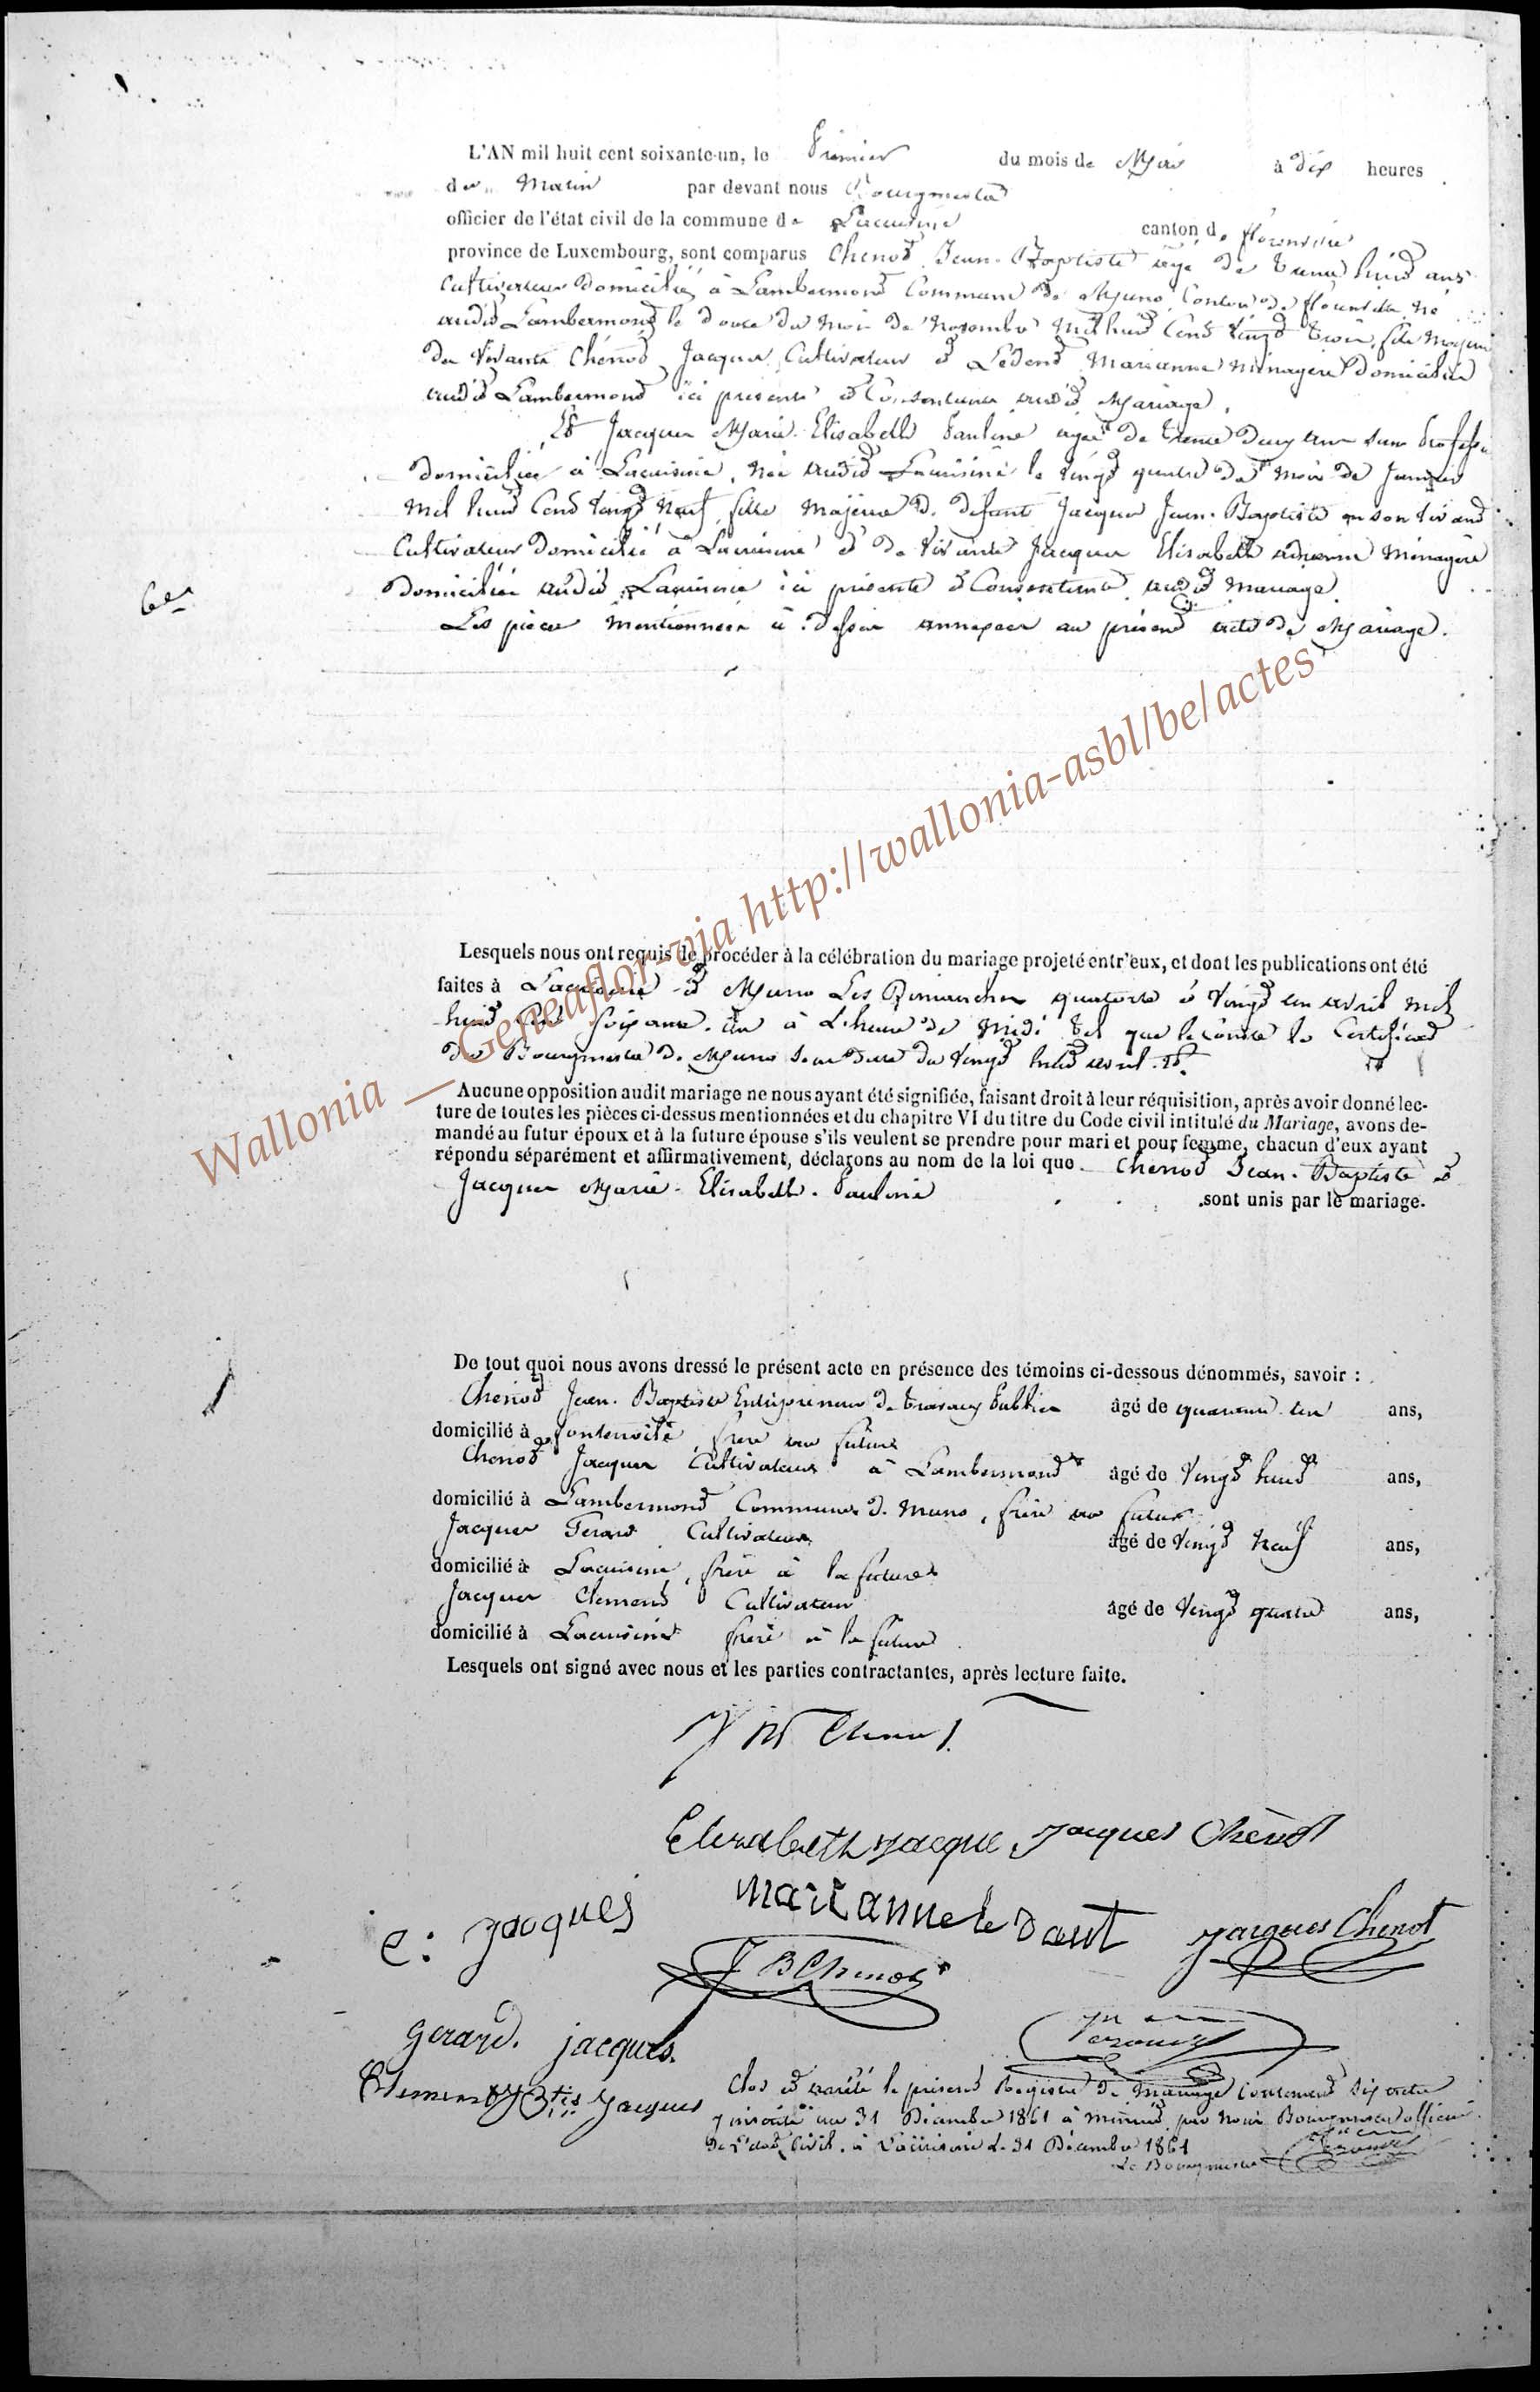 L'AN mil huit cent soixante-un, le Premier du mois de Mai à dix heures
du Matin par devant nous Bourgmestre
officier de l'état civil de la commune de Lacuisine canton de florenville
province de Luxembourg, sont comparus Chenot Jean-Baptiste âgé de trente huit ans
Cultivateur domicilié à Lambermont Commune de Muno, Canton de florenville né
audit Lambermont le douze du mois de Novembre Mil huit Cent Vingt trois, fils Majeur
de Vivants Chénot Jacques Cultivateur et Ledent Marianne Ménagère Domiciliés
audit Lambermont ici présents et Consentants audit Mariage.
Et Jacques Marie-Elisabeth Pauline agée de trente deux ans sans Profession
domiciliée à Lacuisine, Née audit Lacuisine le Vingt quatre du mois de Janvier
Mil huit Cent Vingt Neuf, fille Majeure de défunt Jacques Jean-Baptiste en son vivant
Cultivateur domicilié à Lacuisine et de Vivante Jacques Elisabeth Ménagère
domiciliée audit Lacuisine ici présente et Consentante audit Mariage.
Les pièces Mentionnées ci-dessus annexées au présent acte de Mariage.
6e
Lesquels nous ont requis de procéder à la célébration du mariage projeté entr'eux, et dont les publications ont été
faites à Lacuisine et Muno Les Dimanches quatorze et Vingt un avril mil
huit cent soixante-un à l'heure de Midi tel que le Conste le Certificat
du Bourgmestre de Muno du Vingt huit avril
Aucune opposition audit mariage ne nous ayant été signifiée, faisant droit à leur réquisition, après avoir donné lec-
ture de toutes les pièces ci-dessus mentionnées et du chapitre VI du titre du Code civil intitulé du Mariage, avons de-
mandé au futur époux et à la future épouse s'ils veulent se prendre pour mari et pour femme, chacun d'eux ayant
répondu séparément et affirmativement, déclarons au nom de la loi que Chenot Jean-Baptiste et
Jacques Marie-Elisabeth-Pauline sont unis par le mariage.
De tout quoi nous avons dressé le présent acte en présence des témoins ci-dessous dénommés, savoir :
Chenot Jean-Baptiste Entrepreneur de travaux Publics âgé de quarante-un ans,
domicilié à fontenoille, frère au futur
Chenot Jacques Cultivateur à Lambermont âgé de Vingt huit ans,
domicilié à Lambermont Commune de Muno, frère au futur
Jacques Gerard Cultivateur âgé de Vingt Neuf ans,
domicilié à Lacuisine, frère à la future
Jacques Clement Cultivateur âgé de Vingt quatre ans,
domicilié à Lacuisine frère à la future
Lesquels ont signé avec nous et les parties contractantes, après lecture faite.
J Bt Chenot
Elizabeth Jacque Jacques Chènot
e: Jacques Mariannele Dant Jacques Chenot
J B Chenot
Gerard. jacques.
Clement J Btes Jacques
Clos et arrêté le présent Registre de Mariage Contenant Six actes
y inscrits au 31 Décembre 1861 à minuit par Nous Bourgmestre officier
de l'état Civil. à Lacuisine le 31 Décembre 1861
Le Bourgmestre
Wallonia _ Geneaflor-via http://wallonia-asbl/be/actes